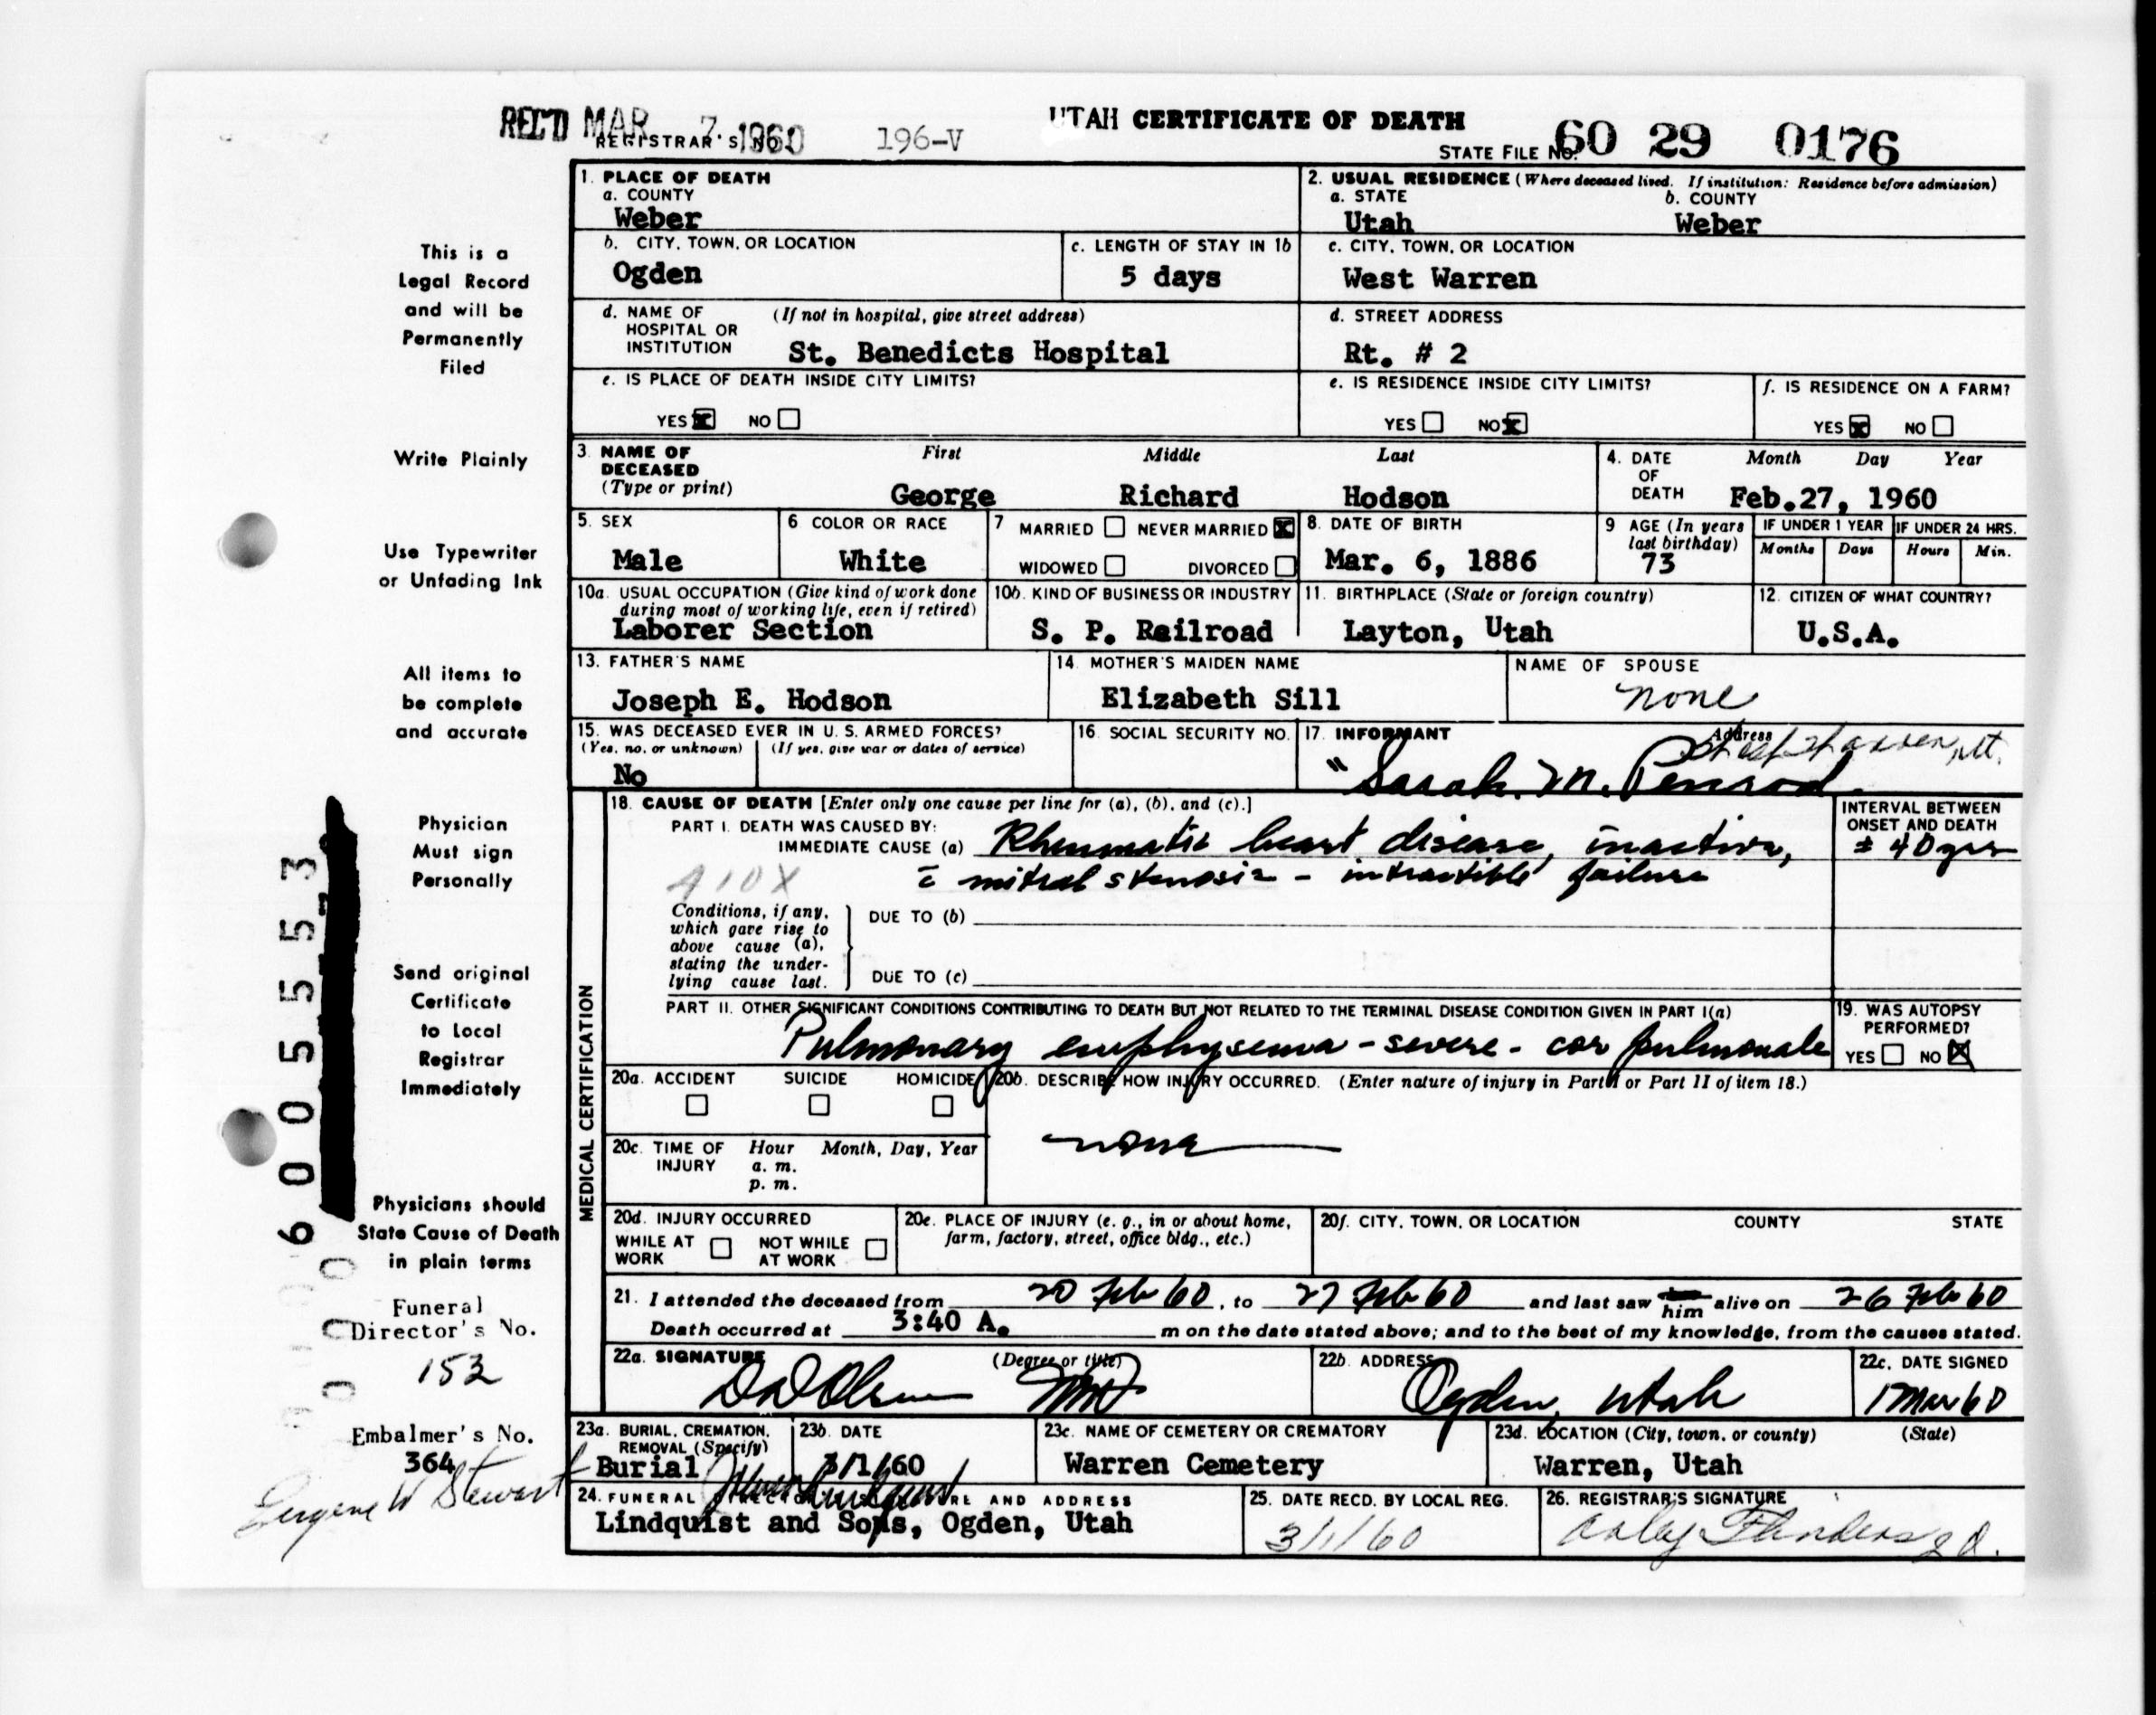 REC'D MAR 7 1960 196-V UTAH CERTIFICATE OF DEATH
REGISTRAR'S NO.
STATE FILE No. 60 29 0176
1. PLACE OF DEATH
a. COUNTY
Weber
2. USUAL RESIDENCE (Where deceased lived. If institution: Residence before admission)
a. STATE b. COUNTY
Utah Weber
b. CITY, TOWN, OR LOCATION
Ogden
c. LENGTH OF STAY IN 1b
5 days
c. CITY, TOWN, OR LOCATION
West Warren
d. NAME OF (If not in hospital, give street address)
HOSPITAL OR
INSTITUTION St. Benedicts Hospital
d. STREET ADDRESS
Rt. # 2
e. IS PLACE OF DEATH INSIDE CITY LIMITS?
YES x NO
e. IS RESIDENCE INSIDE CITY LIMITS?
YES NO x
f. IS RESIDENCE ON A FARM?
YES x NO
3. NAME OF First Middle Last
DECEASED
(Type or print) George Richard Hodson
4. DATE Month Day Year
OF
DEATH Feb.27, 1960
5. SEX
Male
6 COLOR OR RACE
White
7 MARRIED NEVER MARRIED x
WIDOWED DIVORCED
8. DATE OF BIRTH
Mar. 6, 1886
9 AGE (In years
last birthday)
73
IF UNDER 1 YEAR IF UNDER 24 HRS.
Months Days Hours Min.
10a. USUAL OCCUPATION (Give kind of work done
during most of working life, even if retired)
Laborer Section
10b. KIND OF BUSINESS OR INDUSTRY
S. P. Railroad
11. BIRTHPLACE (State or foreign country)
Layton, Utah
12. CITIZEN OF WHAT COUNTRY?
U.S.A.
13. FATHER'S NAME
Joseph E. Hodson
14. MOTHER'S MAIDEN NAME
Elizabeth Sill
NAME OF SPOUSE
none
15. WAS DECEASED EVER IN U. S. ARMED FORCES?
(Yes, no, or unknown) (If yes, give war or dates of service)
No
16. SOCIAL SECURITY NO.
17. INFORMANT Address
Sarah M. Penrod
18. CAUSE OF DEATH [Enter only one cause per line for (a), (b), and (c).]
PART I. DEATH WAS CAUSED BY:
IMMEDIATE CAUSE (a) Rheumatic heart disease, inactive,
c̄ mitral stenosis - intractible failure
410X
INTERVAL BETWEEN
ONSET AND DEATH
± 40 yrs
Conditions, if any,
which gave rise to
above cause (a),
stating the under-
lying cause last.
DUE TO (b)
DUE TO (c)
PART II. OTHER SIGNIFICANT CONDITIONS CONTRIBUTING TO DEATH BUT NOT RELATED TO THE TERMINAL DISEASE CONDITION GIVEN IN PART I(a)
Pulmonary emphysema - severe - cor pulmonale
19. WAS AUTOPSY
PERFORMED?
YES NO x
20a. ACCIDENT SUICIDE HOMICIDE
20b. DESCRIBE HOW INJURY OCCURRED. (Enter nature of injury in Part I or Part II of item 18.)
none
20c. TIME OF Hour Month, Day, Year
INJURY a. m.
p. m.
20d. INJURY OCCURRED
WHILE AT NOT WHILE
WORK AT WORK
20e. PLACE OF INJURY (e. g., in or about home,
farm, factory, street, office bldg., etc.)
20f. CITY, TOWN, OR LOCATION COUNTY STATE
21. I attended the deceased from 20 Feb 60, to 27 Feb 60 and last saw him alive on 26 Feb 60
Death occurred at 3:40 A. m on the date stated above; and to the best of my knowledge, from the causes stated.
22a. SIGNATURE (Degree or title)
Olsen MD
22b. ADDRESS
Ogden, Utah
22c. DATE SIGNED
1 Mar 60
23a. BURIAL, CREMATION,
REMOVAL (Specify)
Burial
23b. DATE
3/1/60
23c. NAME OF CEMETERY OR CREMATORY
Warren Cemetery
23d. LOCATION (City, town, or county) (State)
Warren, Utah
24. FUNERAL DIRECTOR'S SIGNATURE AND ADDRESS
Lindquist and Sons, Ogden, Utah
25. DATE RECD. BY LOCAL REG.
3/1/60
26. REGISTRAR'S SIGNATURE
Flinders
MEDICAL CERTIFICATION
This is a
Legal Record
and will be
Permanently
Filed
Write Plainly
Use Typewriter
or Unfading Ink
All items to
be complete
and accurate
Physician
Must sign
Personally
Send original
Certificate
to Local
Registrar
Immediately
Physicians should
State Cause of Death
in plain terms
Funeral
Director's No.
152
Embalmer's No.
364
Eugene W Stewart
6005553